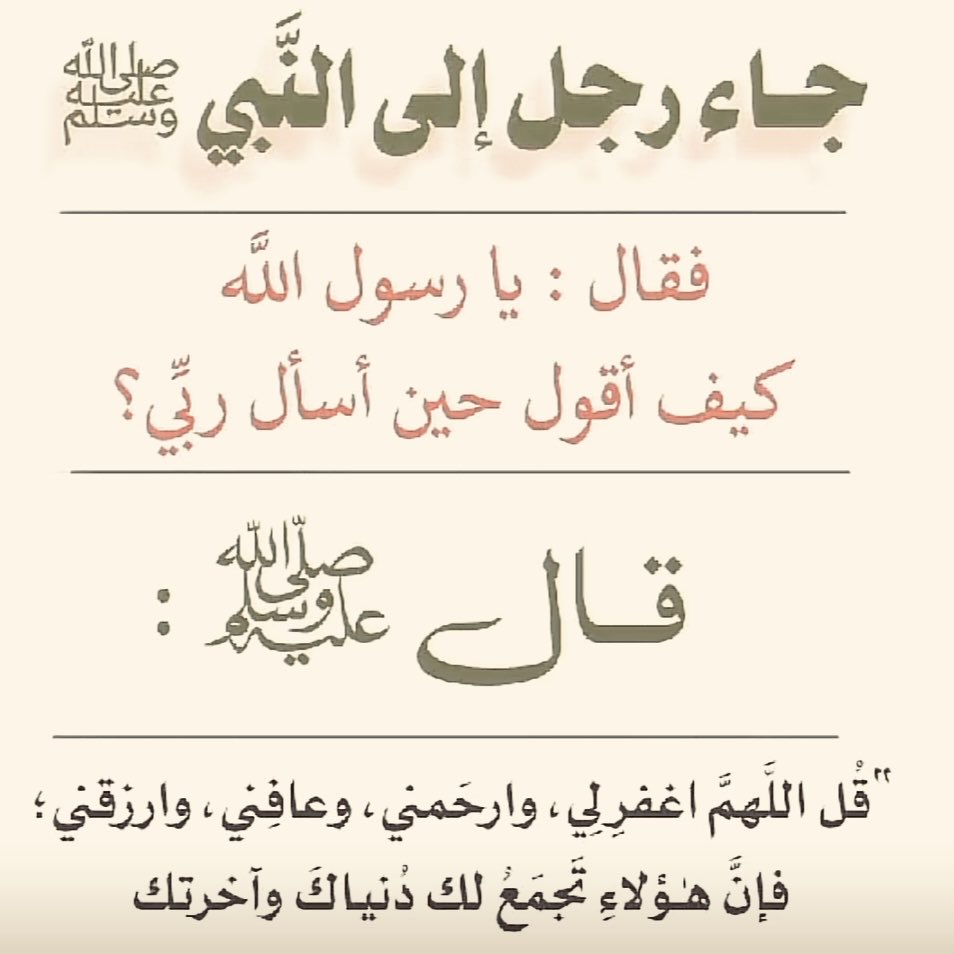 جاء رجل إلى النَّبي ﷺ
فقال : يا رسول اللَّه
كيف أقول حين أسأل ربِّي؟
قال ﷺ :
"قُل اللَّهمَّ اغفرِلِي، وارحَمني، وعافِني، وارزقني؛
فإنَّ هؤلاءِ تَجمَعُ لك دُنياكَ وآخرتك